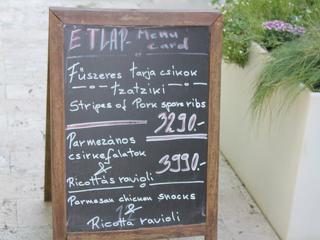 ÉTLAP- Menu card
Fűszeres tarja csíkok
tzatziki
Stripes of Pork spare ribs
3290.-
Parmezános
csirkefalatok
3990.-
&
Ricottás ravioli
Parmesan chicken snacks
&
Ricotta ravioli